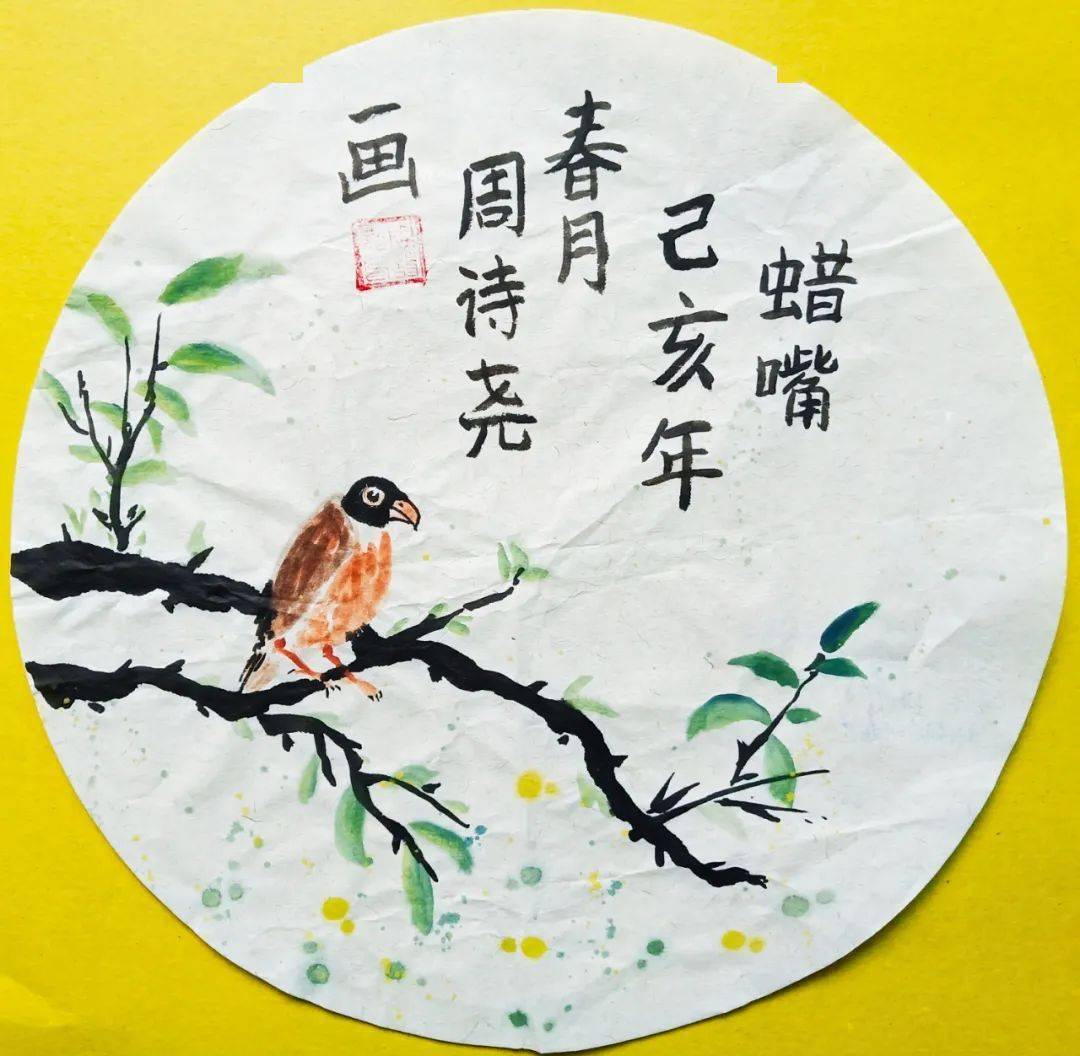 蜡嘴
己亥年
春月
周诗尧
画